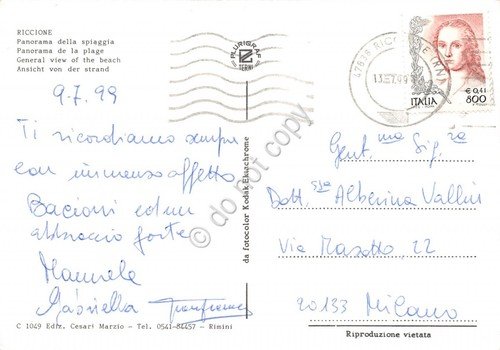 RICCIONE
Panorama della spiaggia
Panorama de la plage
General view of the beach
Ansicht von der strand
9.7.99
Ti ricordiamo sempre
con immenso affetto
Bacioni ed un
abbraccio forte
Manuela
Gabriella Gianfranco
C 1049 Ediz. Cesari Marzio - Tel. 0541-84457 - Rimini
PLURIGRAF
TERNI
da fotocolor Kodak Ektachrome
do not copy
47838 RICCIONE (RN)
13.ET.99
ITALIA
€ 0,41
800
Gent.ma Sig.ra
Dott.ssa Alberina Vallin
Via Masotto, 22
20133 Milano
Riproduzione vietata